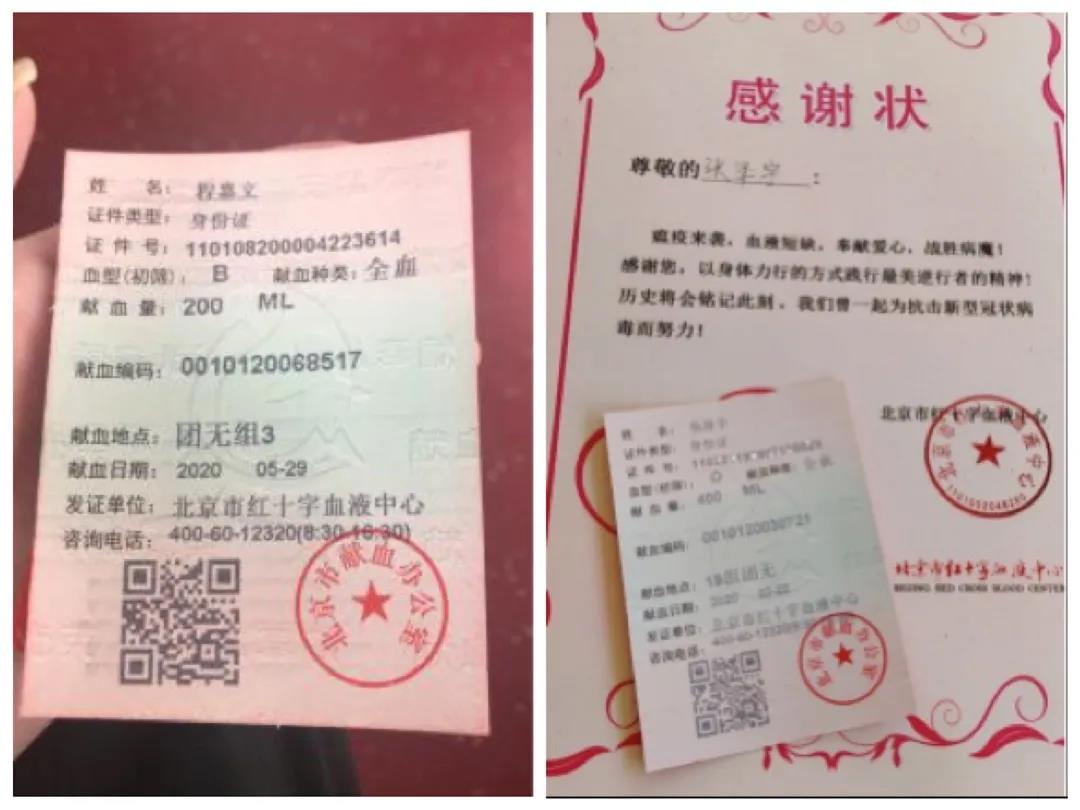 姓 名: 程嘉文
证件类型: 身份证
证 件 号: 110108200004223614
血型(初筛): B 献血种类: 全血
献 血 量: 200 ML
献血编码: 0010120068517
献血地点: 团无组3
献血日期: 2020 05-29
发证单位: 北京市红十字血液中心
咨询电话: 400-60-12320(8:30-16:30)
北京市献血办公室
感谢状
尊敬的 :
瘟疫来袭，血液短缺，奉献爱心，战胜病魔！
感谢您，以身体力行的方式践行最美逆行者的精神！
历史将会铭记此刻，我们曾一起为抗击新型冠状病
毒而努力！
北京市红十字血液中心
北京市红十字血液中心
BEIJING RED CROSS BLOOD CENTER
姓 名:
证件类型: 身份证
证 件 号:
血型(初筛): O 献血种类: 全血
献 血 量: 400 ML
献血编码:
献血地点:
献血日期: 2020
发证单位: 北京市红十字血液中心
咨询电话: 400-60-12320
北京市献血办公室